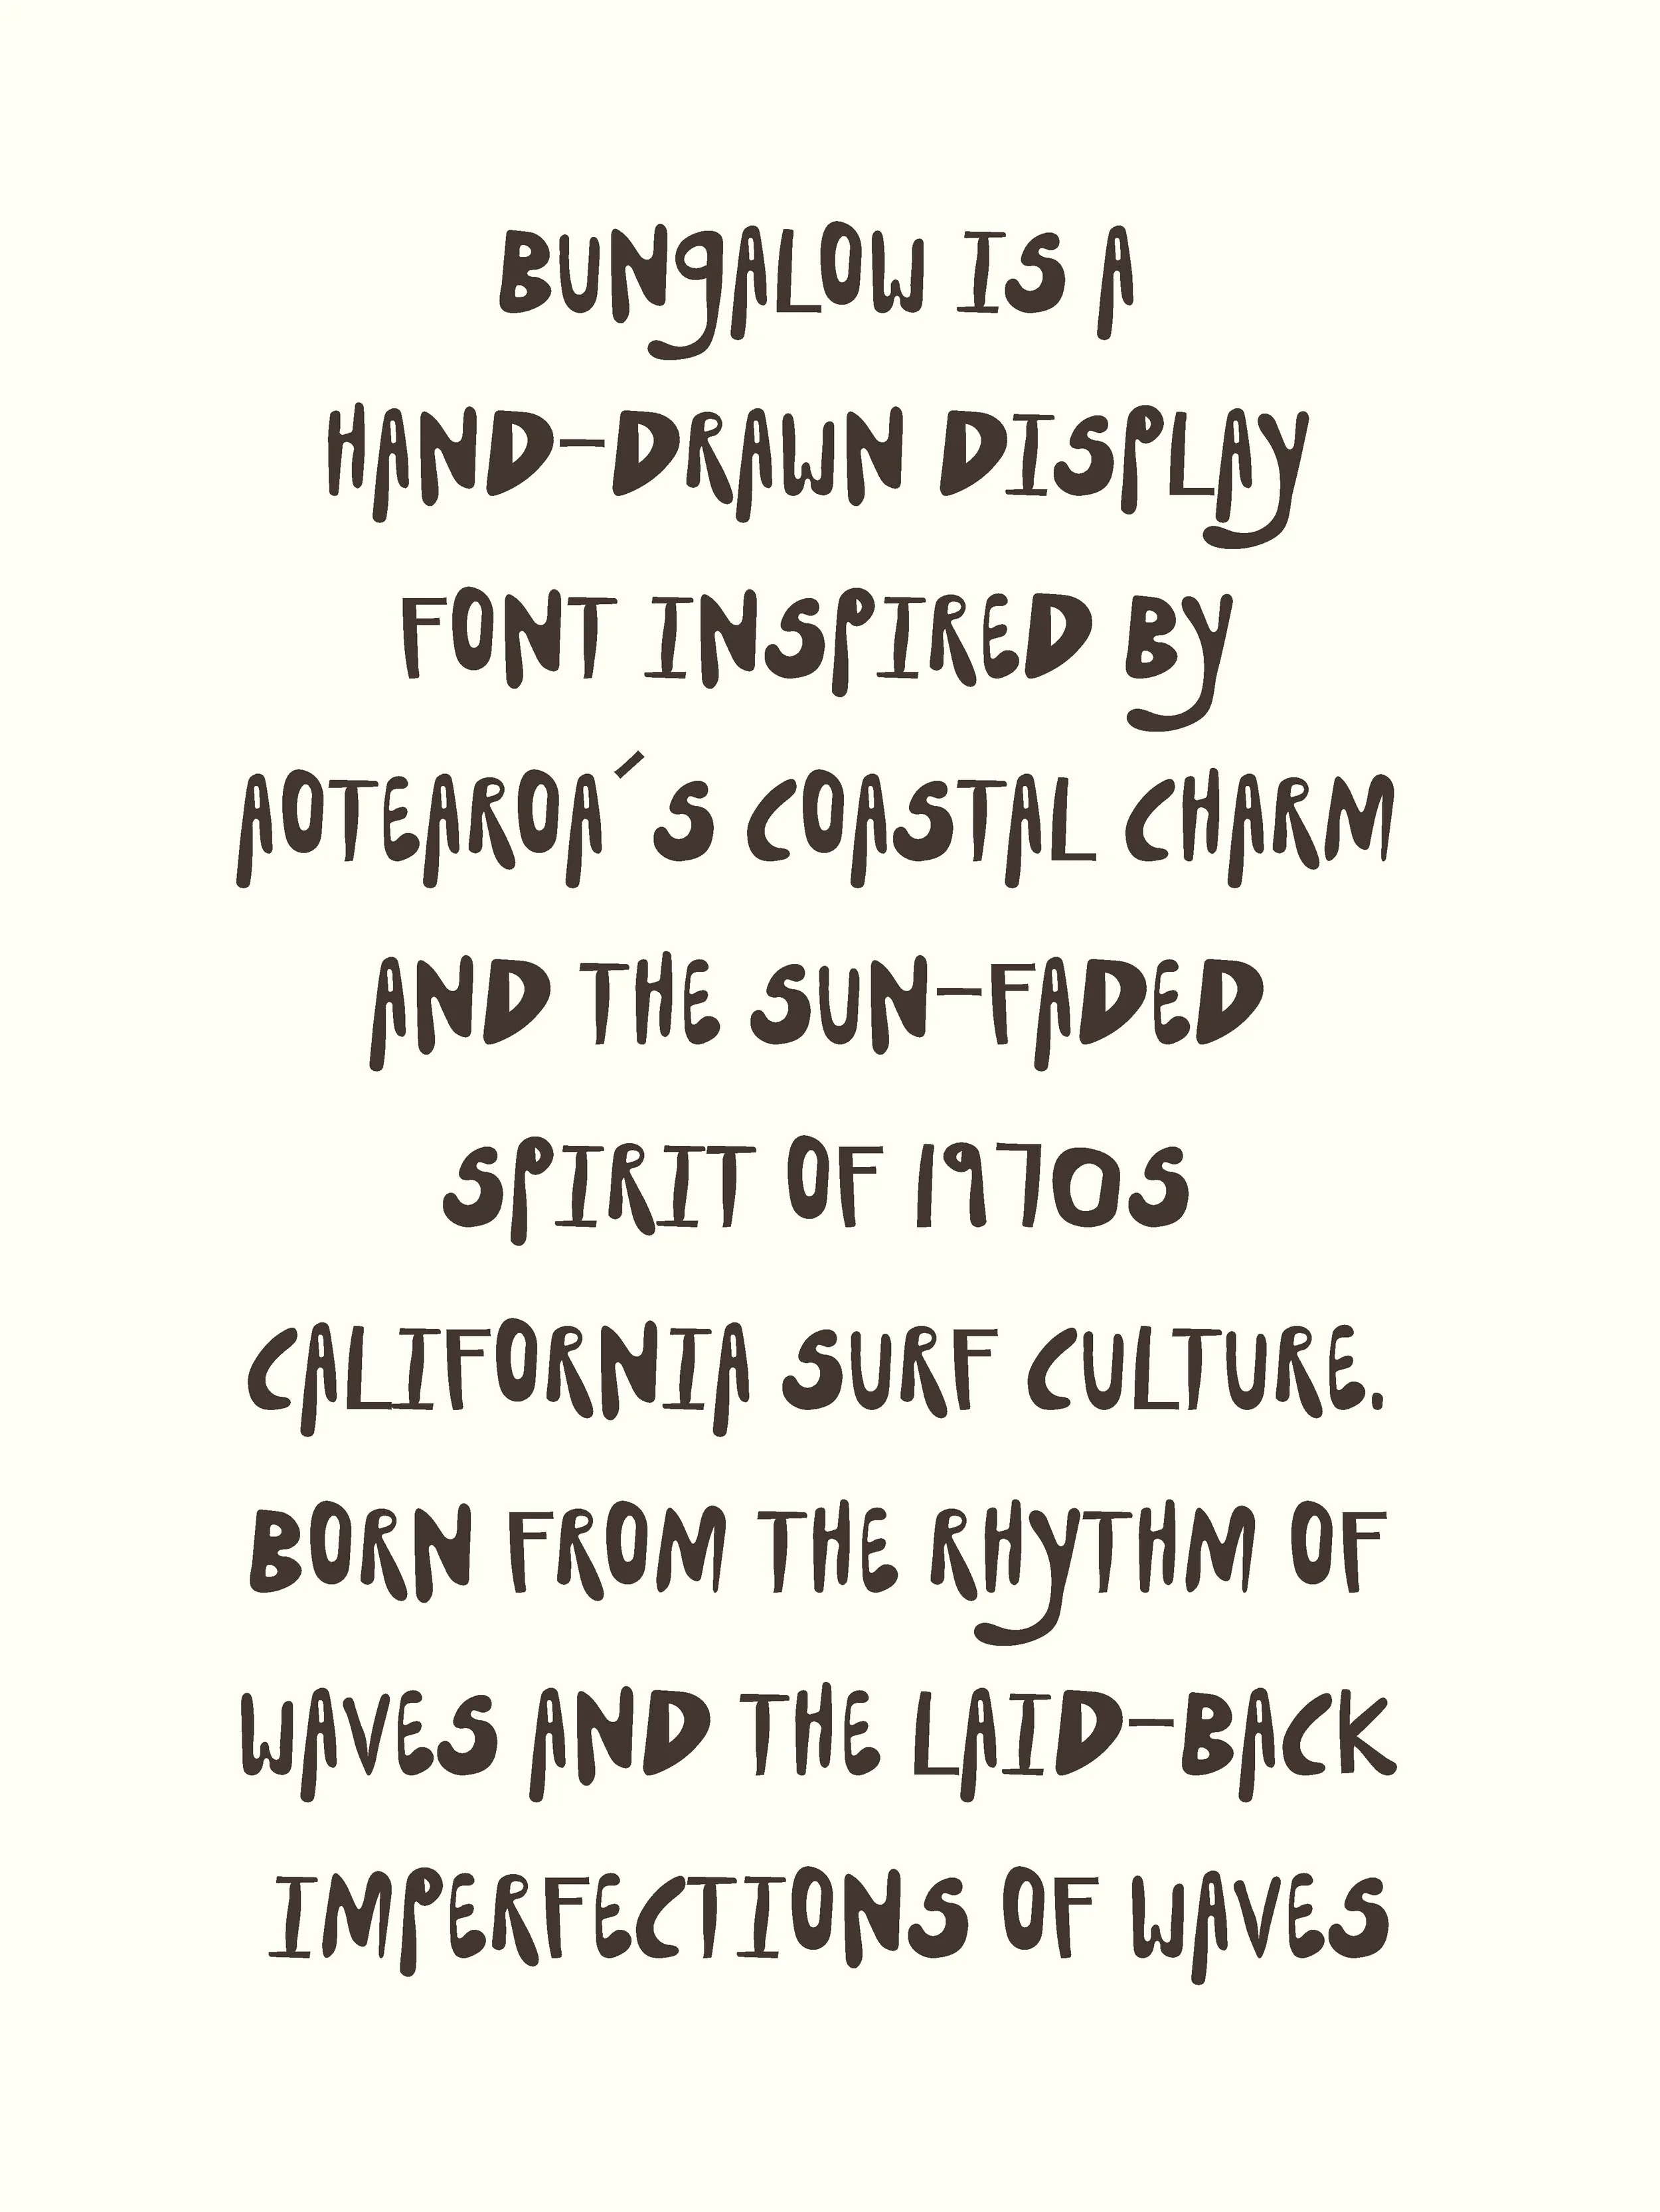 BUNgALOW IS A
HAND-DRAWN DISPLAY
FONT INSPIRED BY
AOTEAROA´S COASTAL CHARM
AND THE SUN-FADED
SPIRIT OF 1970S
CALIFORNIA SURF CULTURE.
BORN FROM THE RHYTHM OF
WAVES AND THE LAID-BACK
IMPERFECTIONS OF WAVES